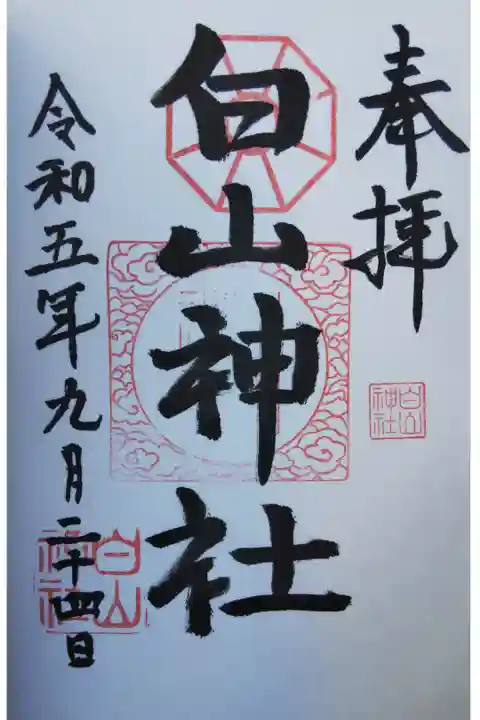 奉拝
白山神社
白山
神社
令和五年九月二十四日
白山
神社